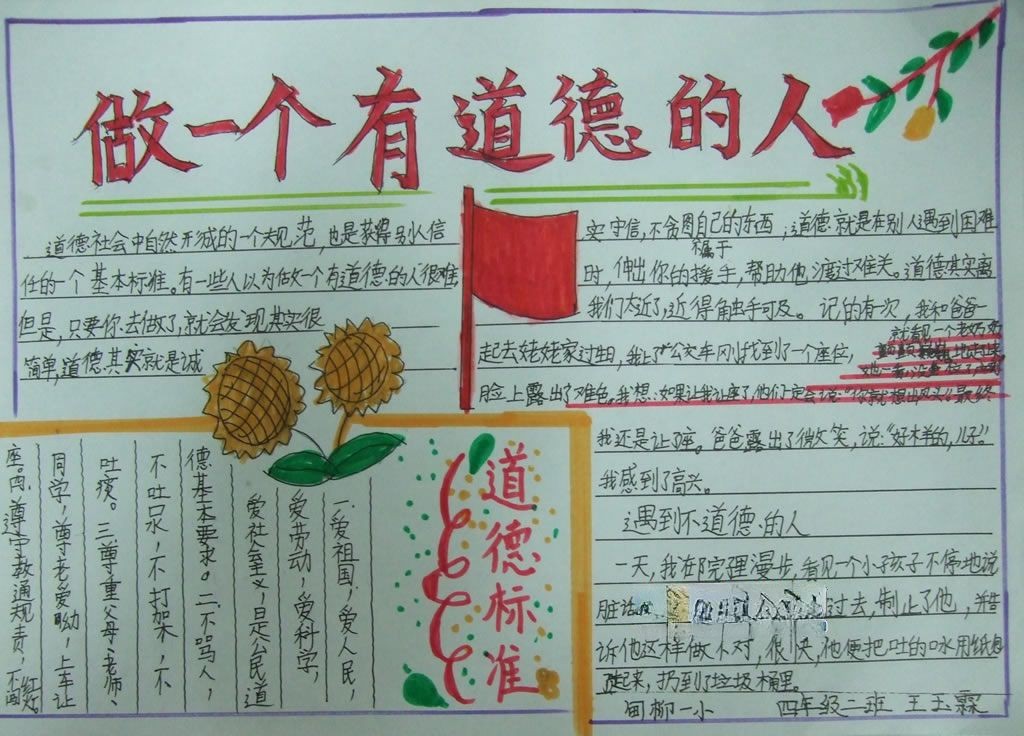 做一个有道德的人
道德社会中自然形成的一个规范,也是获得别人信
任的一个基本标准。有一些人以为做一个有道德的人很难,
但是,只要你去做了,就会发现其实很
简单,道德其实就是诚
实守信,不贪图自己的东西;道德就是在别人遇到困难
不属于
时,伸出你的援手,帮助他渡过难关。道德其实离
我们太近了,近得角虫手可及。记的有一次,我和爸爸一
起去姥姥家过生日,我上了公交车刚找到了一个座位,
就看见一个老奶奶
脸上露出了难色。我想:如果让我让座了,他们定会说:“你就想出风头”最终
我还是让了座。爸爸露出了微笑,说:“好样的,儿子。”
我感到了高兴。
遇到不道德的人
一天,我在院理漫步,看见一个小孩子不停地说
脏话
过去,制止了他,并告
诉他这样做不对,很快,他便把吐的口水用纸
起来,扔到了垃圾桶里。
甸柳一小 四年级二班 王玉霖
道德标准
一、爱祖国,爱人民,
爱劳动,爱科学,
爱社会主义,是公民道
德基本要求。二、不骂人,
不吐口水,不打架,不
吐痰。三、尊重父母、老师、
同学,尊老爱呦,上车让
座。四、遵守教通规责,不闯红灯。